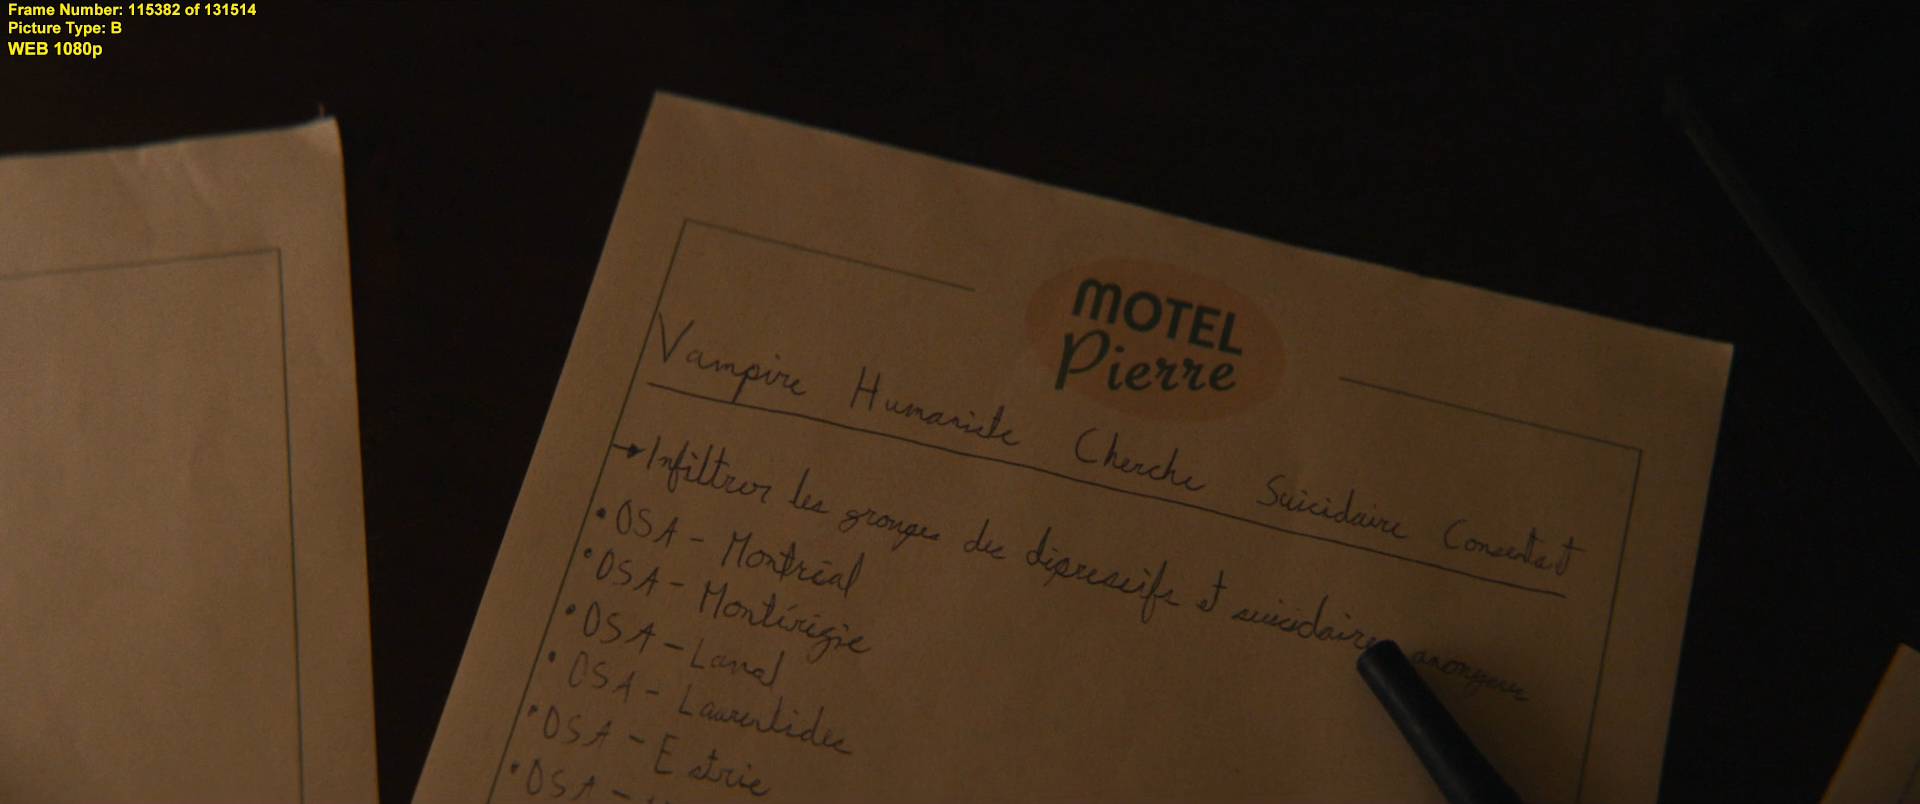 Frame Number: 115382 of 131514
Picture Type: B
WEB 1080p
MOTEL
Pierre
Vampire Humaniste Cherche Suicidaire Consentant
→ Infiltrer les groupes des dépressifs et suicidaires anonymes
• DSA - Montréal
• DSA - Montérégie
• DSA - Laval
• DSA - Laurentides
• DSA - Estrie
• DSA -